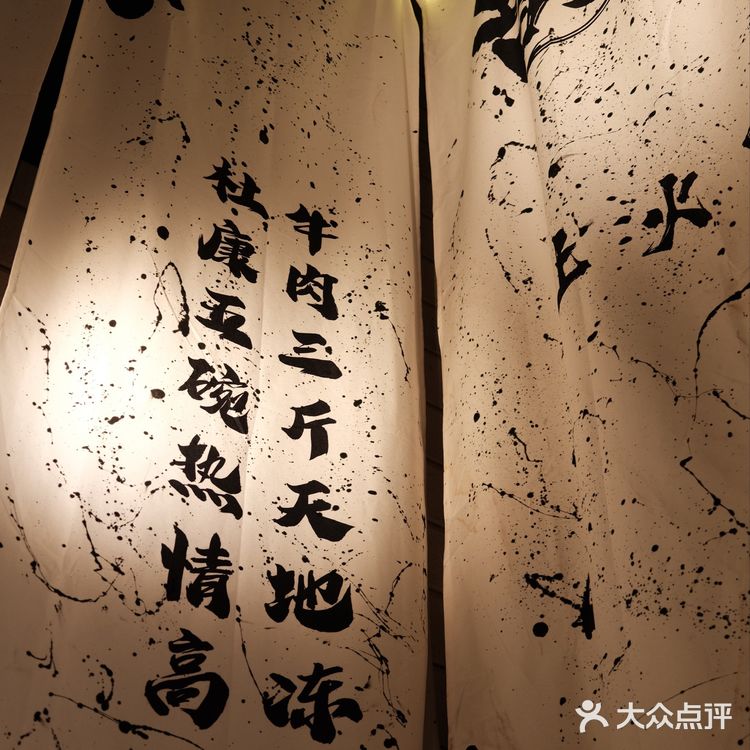 牛肉三斤天地冻
杜康五碗热情高
大众点评